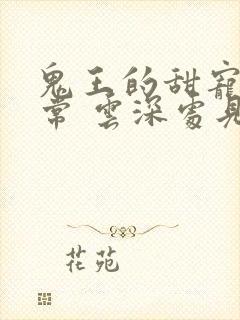 鬼王的甜寵
常 雲深處見
花苑